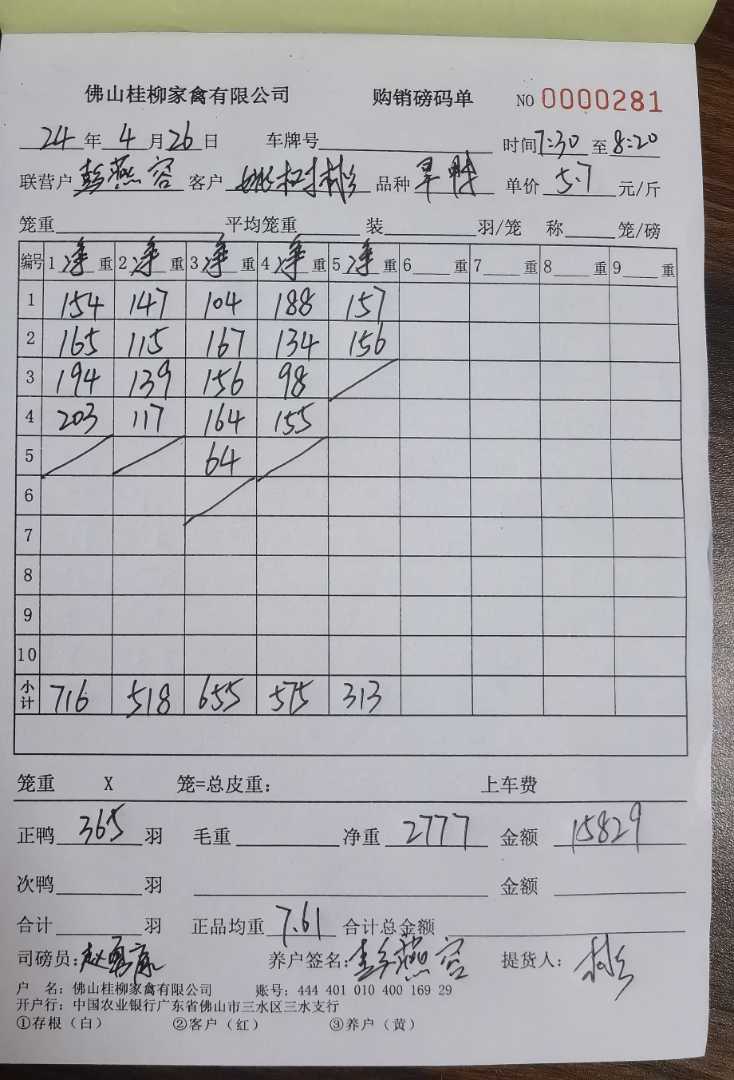 佛山桂柳家禽有限公司 购销磅码单 NO 0000281
24年4月26日 车牌号 时间7:30至8:20
联营户 彭燕容 客户 姚树彬 品种 旱鸭 单价 5.7 元/斤
笼重 平均笼重 装 羽/笼 称 笼/磅
编号 1 净 重 2 净 重 3 净 重 4 净 重 5 净 重 6 重 7 重 8 重 9 重
1 154 147 104 188 157
2 165 115 167 134 156
3 194 139 156 98
4 203 117 164 155
5 64
6
7
8
9
10
小计 716 518 655 575 313
笼重 X 笼=总皮重： 上车费
正鸭 365 羽 毛重 净重 2777 金额 15829
次鸭 羽 金额
合计 羽 正品均重 7.61 合计总金额
司磅员： 养户签名：彭燕容 提货人：彬
户 名：佛山桂柳家禽有限公司 账号：444 401 010 400 169 29
开户行：中国农业银行广东省佛山市三水区三水支行
①存根（白） ②客户（红） ③养户（黄）